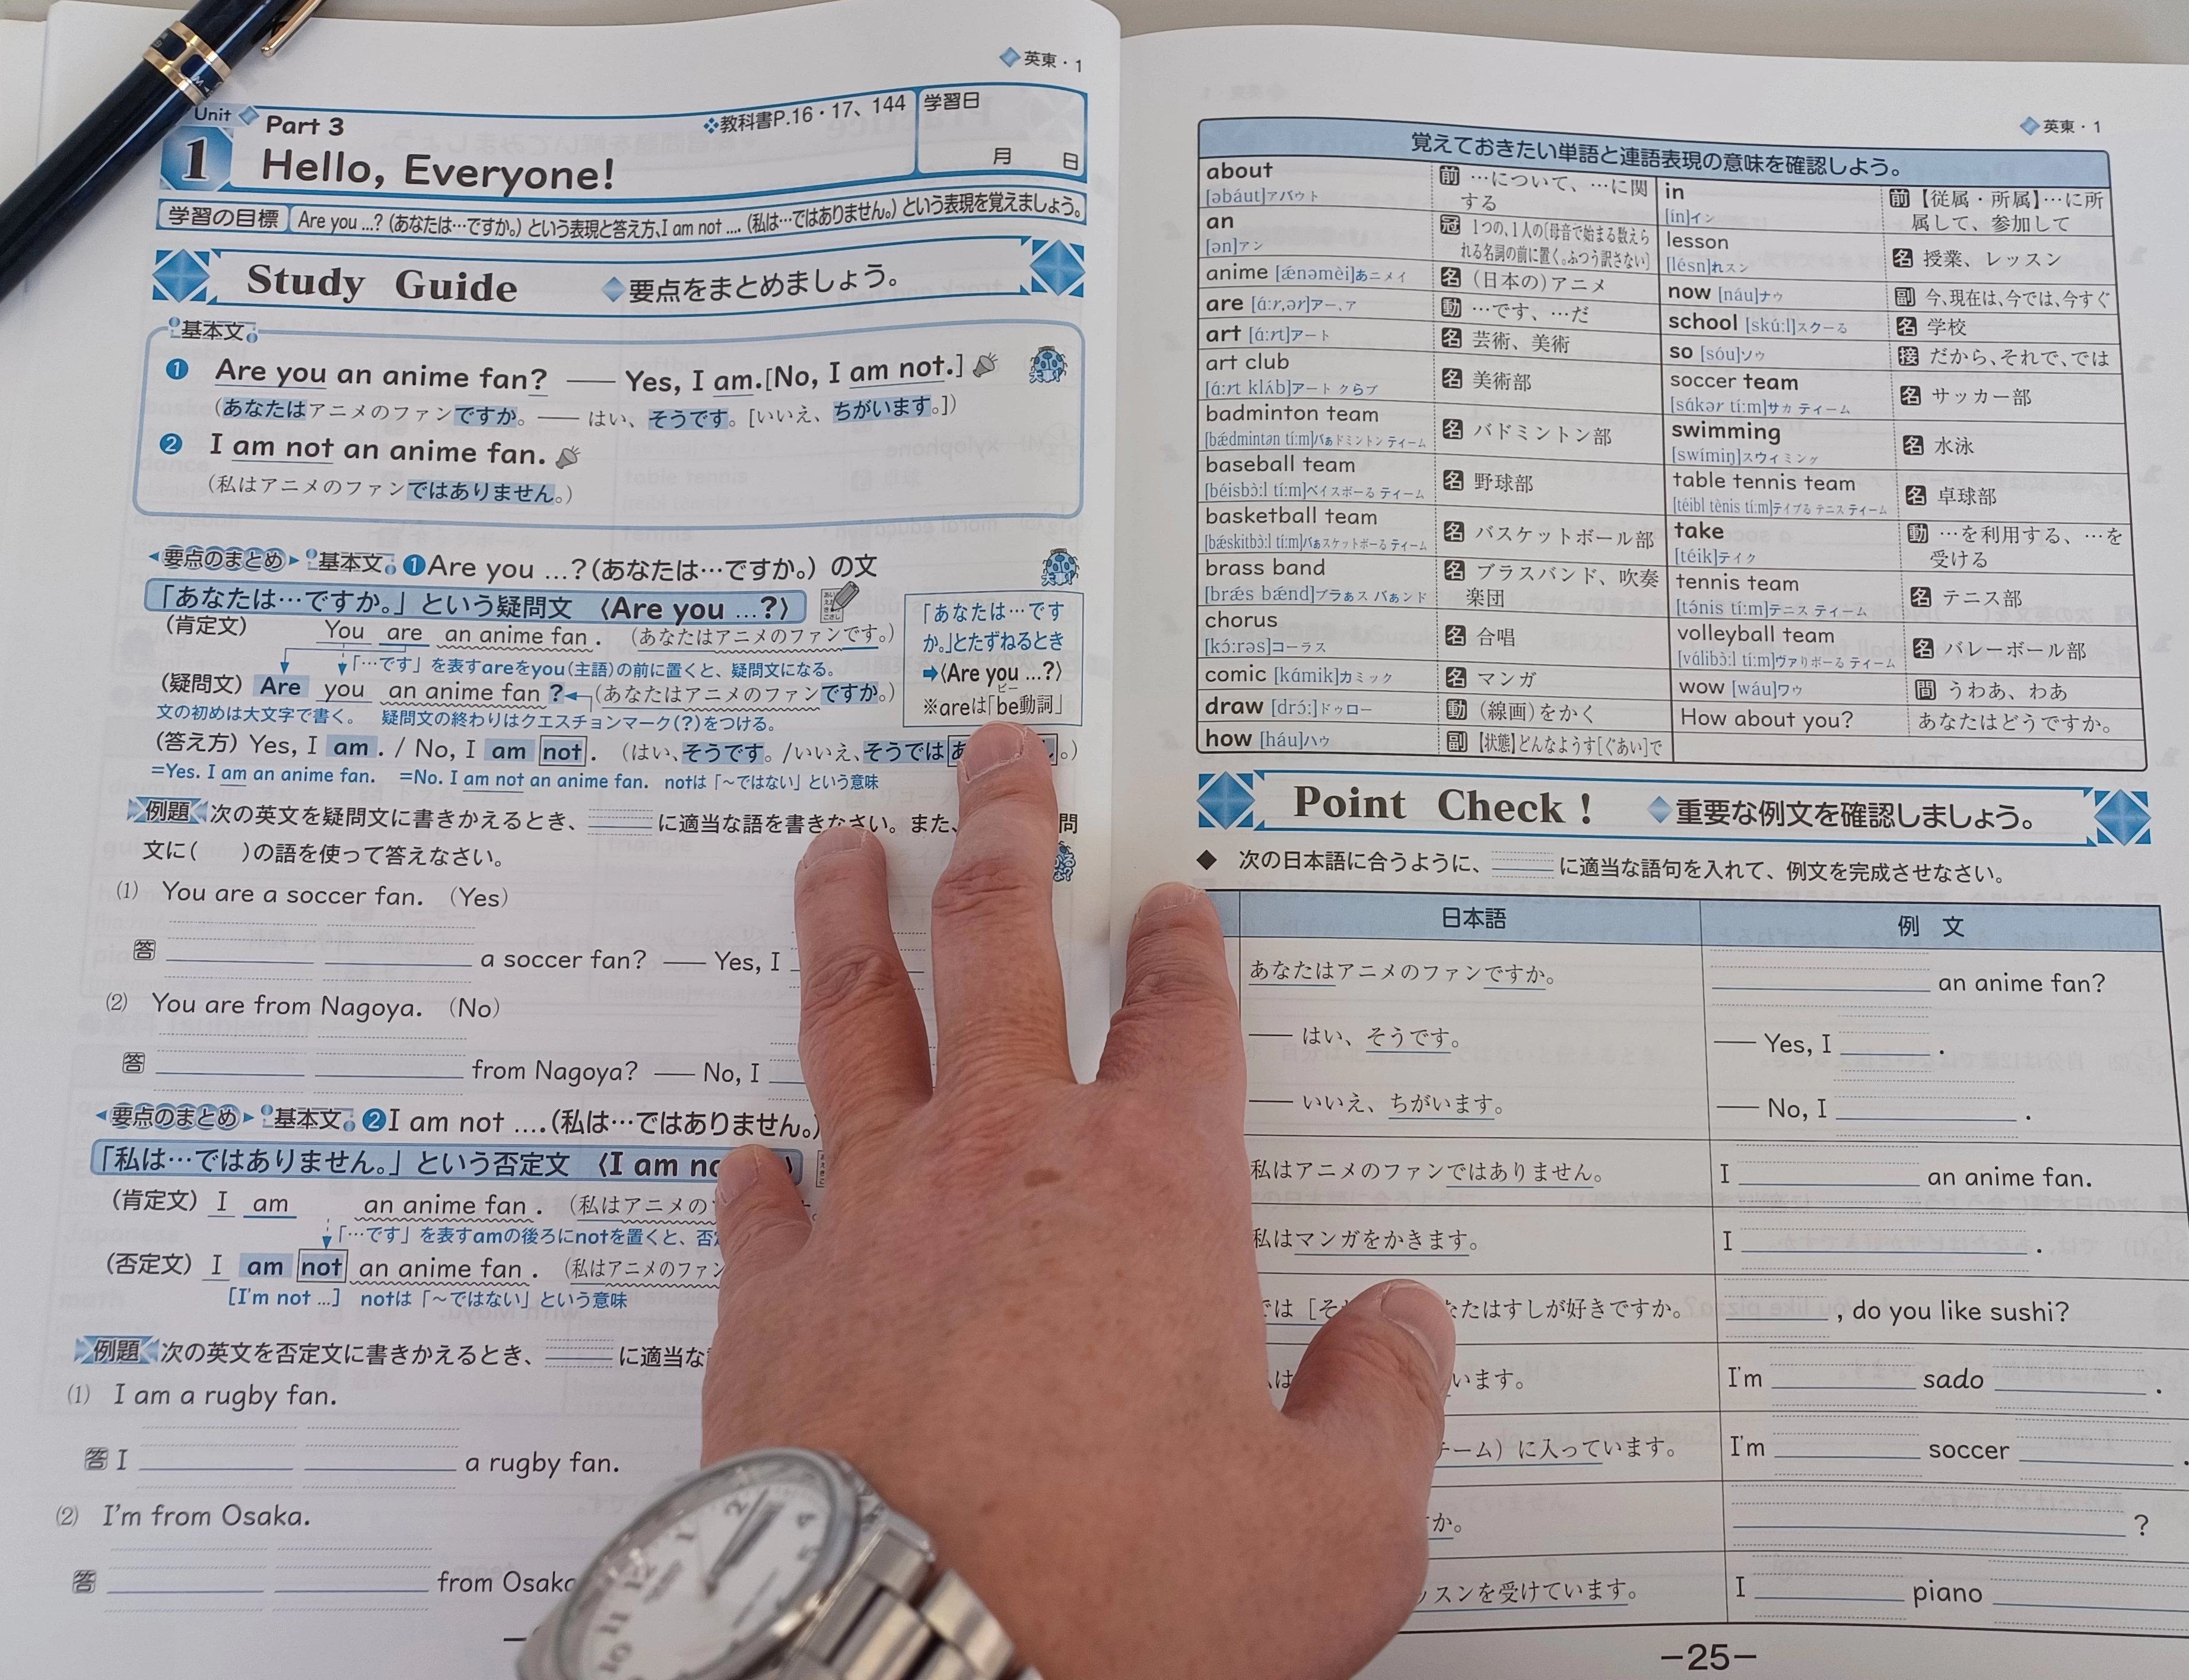 英東・1
Unit 1 Part 3
❖教科書P.16・17、144
学習日
月 日
Hello, Everyone!
学習の目標 Are you ...? (あなたは…ですか。) という表現と答え方、I am not .... (私は…ではありません。) という表現を覚えましょう。
Study Guide ◆要点をまとめましょう。
基本文
❶ Are you an anime fan? —— Yes, I am.[No, I am not.]
大事!
(あなたはアニメのファンですか。—— はい、そうです。[いいえ、ちがいます。])
❷ I am not an anime fan.
(私はアニメのファンではありません。)
要点のまとめ 基本文 ❶Are you ...?(あなたは…ですか。) の文
大事!
「あなたは…ですか。」という疑問文 〈Are you ...?〉
(肯定文) You are an anime fan. (あなたはアニメのファンです。)
「…です」を表すareをyou(主語)の前に置くと、疑問文になる。
(疑問文) Are you an anime fan ? (あなたはアニメのファンですか。)
文の初めは大文字で書く。 疑問文の終わりはクエスチョンマーク(?)をつける。
「あなたは…です
か。」とたずねるとき
➡〈Are you ...?〉
ビー
※areは「be動詞」
(答え方) Yes, I am . / No, I am not . (はい、そうです。/いいえ、そうでは 。)
=Yes. I am an anime fan. =No. I am not an anime fan. notは「〜ではない」という意味
例題 次の英文を疑問文に書きかえるとき、 に適当な語を書きなさい。また、 問
文に( )の語を使って答えなさい。
(1) You are a soccer fan. (Yes)
答 a soccer fan? —— Yes, I
(2) You are from Nagoya. (No)
答 from Nagoya? —— No, I
要点のまとめ 基本文 ❷I am not ....(私は…ではありません。)
「私は…ではありません。」という否定文 〈I am
(肯定文) I am an anime fan . (私はアニメの
「…です」を表すamの後ろにnotを置くと、否
(否定文) I am not an anime fan . (私はアニメのファン
[I'm not ...] notは「〜ではない」という意味
例題 次の英文を否定文に書きかえるとき、 に適当な
(1) I am a rugby fan.
答 I a rugby fan.
(2) I'm from Osaka.
答 from Osaka
英東・1
覚えておきたい単語と連語表現の意味を確認しよう。
about [əbáut]アバウト 前 …について、…に関する
an [ən]アン 冠 1つの、1人の[母音で始まる数えられる名詞の前に置く。ふつう訳さない]
anime [ǽnəmèi]あニメイ 名 (日本の)アニメ
are [ɑ́ːr,ər]アー、ア 動 …です、…だ
art [ɑ́ːrt]アート 名 芸術、美術
art club [ɑ́ːrt klʌ́b]アート クらブ 名 美術部
badminton team [bǽdmintən tíːm]バぁドミントン ティーム 名 バドミントン部
baseball team [béisbɔ̀ːl tíːm]ベイスボーる ティーム 名 野球部
basketball team [bǽskitbɔ̀ːl tíːm]バぁスケットボーる ティーム 名 バスケットボール部
brass band [brǽs bǽnd]ブラぁス バぁンド 名 ブラスバンド、吹奏楽団
chorus [kɔ́ːrəs]コーラス 名 合唱
comic [kɑ́mik]カミック 名 マンガ
draw [drɔ́ː]ドゥロー 動 (線画)をかく
how [háu]ハウ 副 【状態】どんなようす[ぐあい]で
in [ín]イン 前 【従属・所属】…に所属して、参加して
lesson [lésn]れスン 名 授業、レッスン
now [náu]ナウ 副 今、現在は、今では、今すぐ
school [skúːl]スクーる 名 学校
so [sóu]ソウ 接 だから、それで、では
soccer team [sɑ́kər tíːm]サカ ティーム 名 サッカー部
swimming [swímiŋ]スウィミング 名 水泳
table tennis team [téibl tènis tíːm]テイブる テニス ティーム 名 卓球部
take [téik]テイク 動 …を利用する、…を受ける
tennis team [ténis tíːm]テニス ティーム 名 テニス部
volleyball team [vɑ́libɔ̀ːl tíːm]ヴァりボーる ティーム 名 バレーボール部
wow [wáu]ワウ 間 うわあ、わあ
How about you? あなたはどうですか。
Point Check ! ◆重要な例文を確認しましょう。
◆ 次の日本語に合うように、 に適当な語句を入れて、例文を完成させなさい。
日本語 例 文
あなたはアニメのファンですか。 an anime fan?
—— はい、そうです。 —— Yes, I .
—— いいえ、ちがいます。 —— No, I .
私はアニメのファンではありません。 I an anime fan.
私はマンガをかきます。 I .
では[そ たはすしが好きですか。 , do you like sushi?
います。 I'm sado .
チーム)に入っています。 I'm soccer .
か。 ?
ッスンを受けています。 I piano
−25−